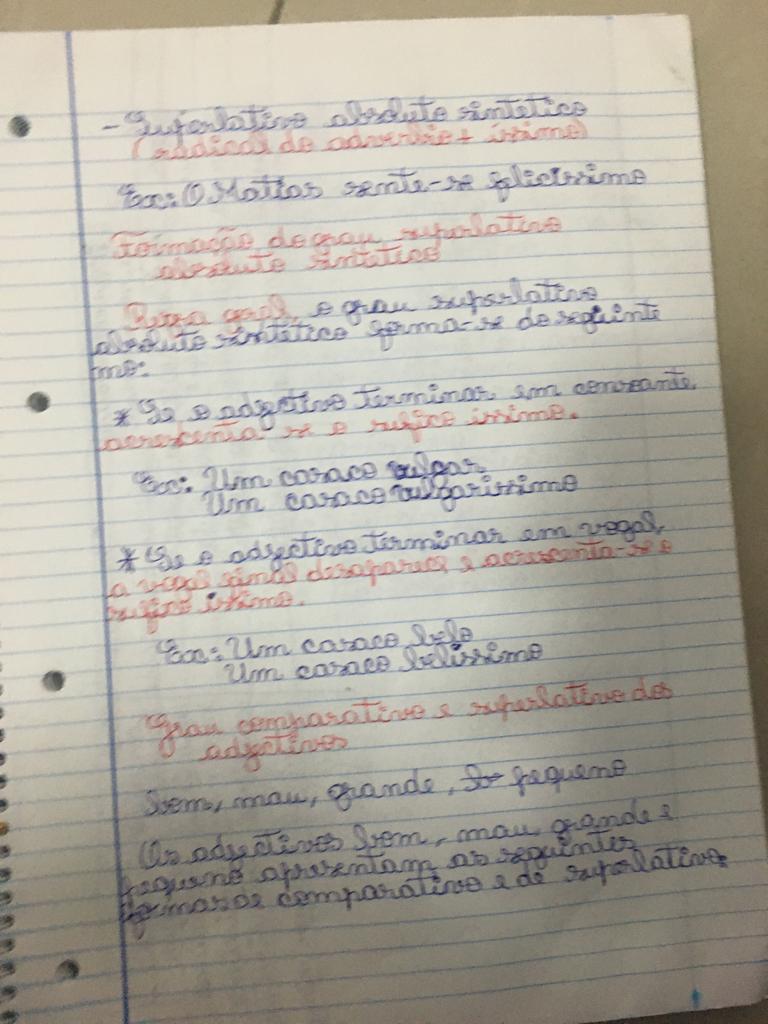 - Superlativo absoluto sintetico
(radical do adverbio + íssimo)
Ex: O Matias sente-se felicissimo
Formação do grau superlativo
absoluto sintetico
Regra geral, o grau superlativo
absoluto sintético forma-se do seguinte
mo:
* Se o adjectivo terminar em consoante,
acrescenta-se o sufico issimo.
Ex: Um casaco vulgar
Um casaco vulgarissimo
* Se o adjectivo terminar em vogal,
a vogal final desaparece e acrescenta-se o
sufixo issimo.
Ex: Um casaco belo
Um casaco belissimo
Grau comparativo e superlativo dos
adjetivos
bom, mau, grande, pequeno
Os adjectivos bom, mau, grande e
pequeno apresentam as seguintes
formas comparativo e de superlativo